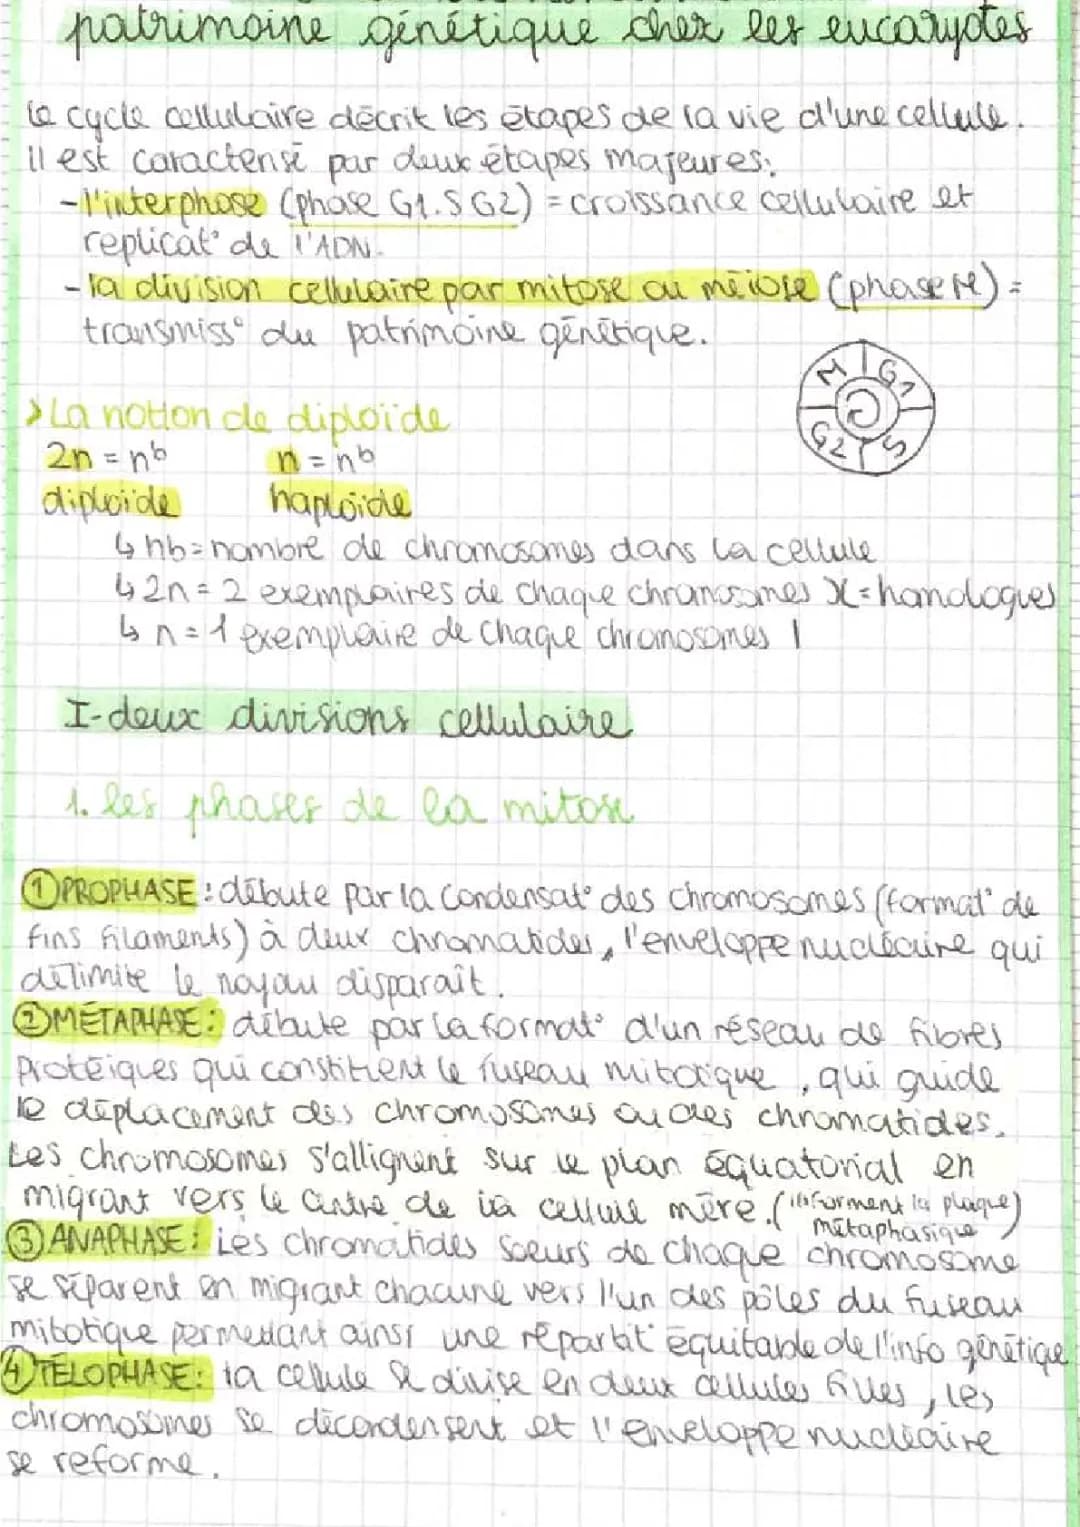 patrimoine génétique chez les eucaryotes
le cycle cellulaire décrit les étapes de la vie d'une cellule.
Il est caracterisé par deux étapes majeures:
-l'interphase (phase G1.S G2) = croissance cellulaire et
replicat° de l'ADN.
-la division cellulaire par mitose ou méiose (phase M) =
transmiss° du patrimoine génétique.
M G1
G2 S
>La notion de diploïde
2n = nb n = nb
diploïde haploïde
↳ nb=nombre de chromosomes dans la cellule
↳ 2n = 2 exemplaires de chaque chromosomes X=homologues
↳ n = 1 exemplaire de chaque chromosomes I
I-deux divisions cellulaire
1. les phases de la mitose
①PROPHASE: débute par la condensat° des chromosomes (format° de
fins filaments) à deux chromatides, l'enveloppe nucléaire qui
délimite le noyau disparaît.
②MÉTAPHASE: débute par la format° d'un réseau de fibres
protéiques qui constituent le fuseau mitotique, qui guide
le déplacement des chromosomes ou des chromatides.
Les chromosomes s'allignent sur le plan équatorial en
migrant vers le centre de la cellule mère. (ils forment la plaque
métaphasique)
③ANAPHASE: Les chromatides soeurs de chaque chromosome
se séparent en migrant chacune vers l'un des pôles du fuseau
mitotique permettant ainsi une répartit° équitable de l'info génétique
④TÉLOPHASE: la cellule se divise en deux cellules filles, les
chromosomes se décondensent et l'enveloppe nucléaire
se reforme.